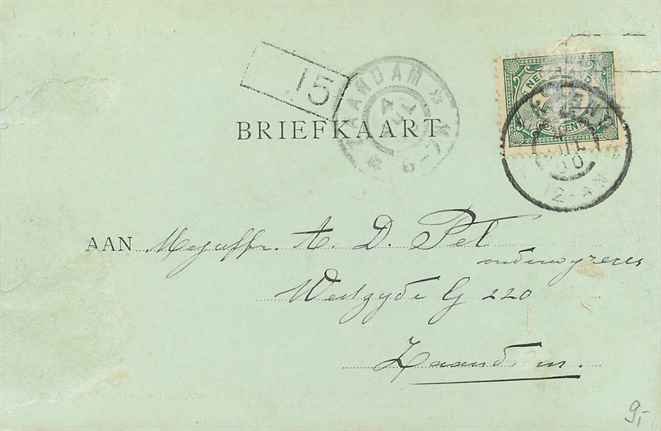 15
ZAANDAM
BRIEFKAART
12-
AAN Mejuffr. A. D. Pet
onderwijzeres
Westzijde G 220
Zaandam.
9,-